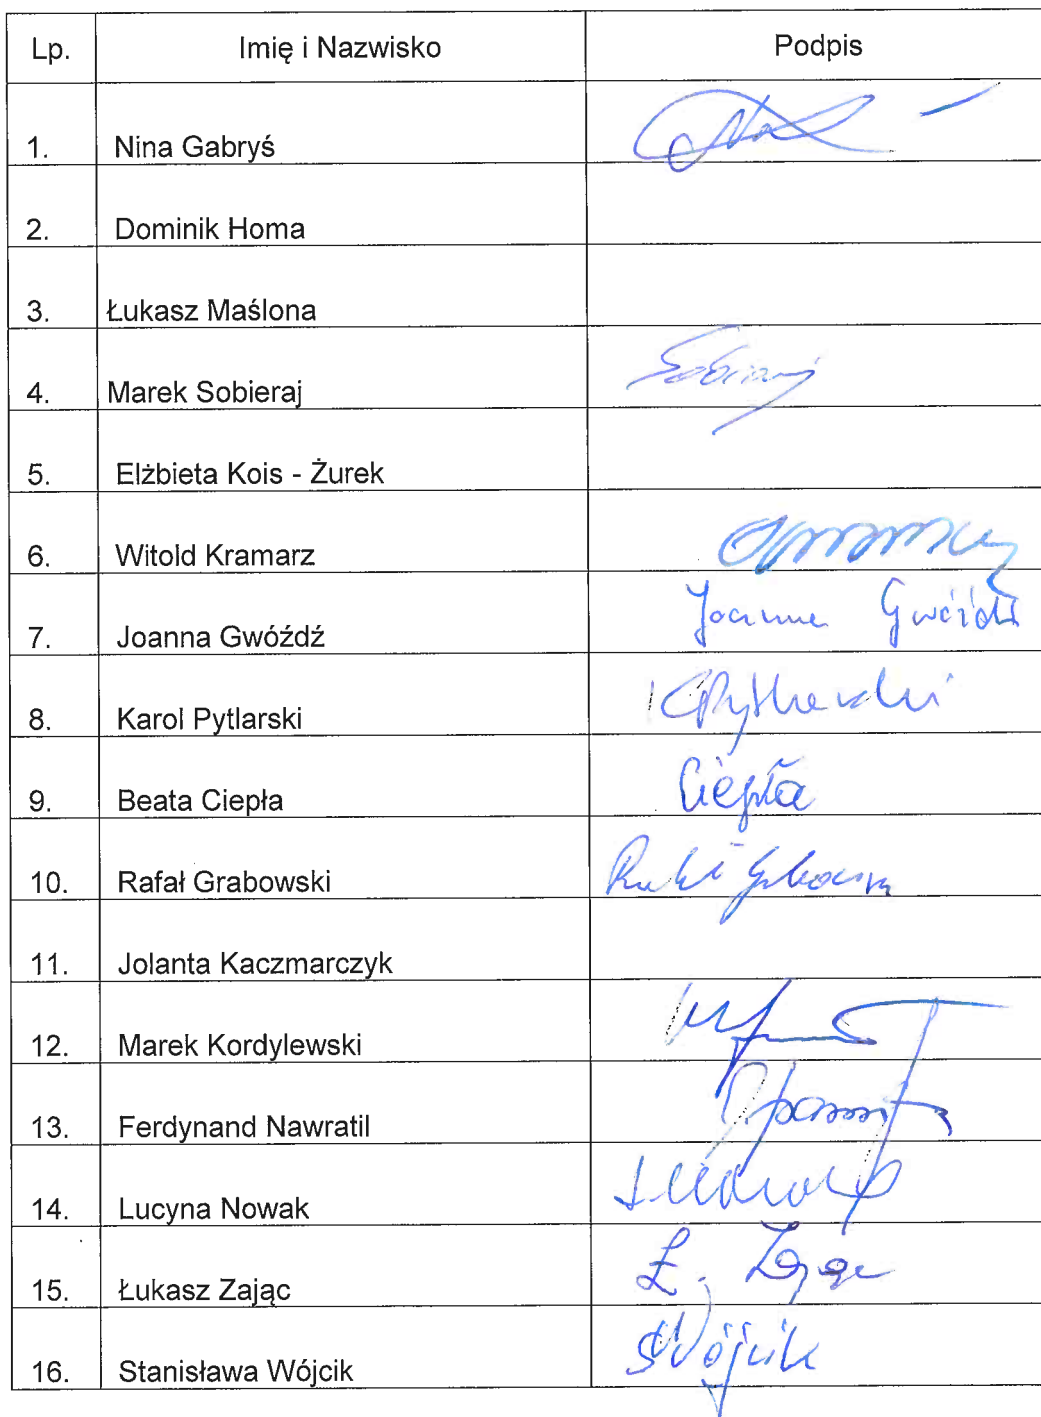 Lp. Imię i Nazwisko Podpis
1. Nina Gabryś
2. Dominik Homa
3. Łukasz Maślona
4. Marek Sobieraj Sobieraj
5. Elżbieta Kois - Żurek
6. Witold Kramarz
7. Joanna Gwóźdź Joanna Gwóźdź
8. Karol Pytlarski KPytlarski
9. Beata Ciepła Ciepła
10. Rafał Grabowski
11. Jolanta Kaczmarczyk
12. Marek Kordylewski
13. Ferdynand Nawratil
14. Lucyna Nowak
15. Łukasz Zając Ł. Zając
16. Stanisława Wójcik SWójcik